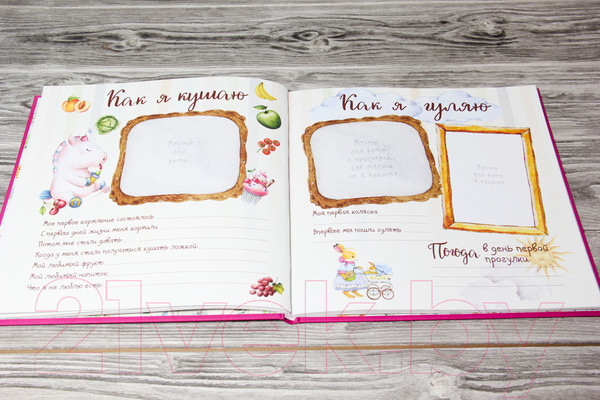 Как я кушаю
Место
для
фото
Мое первое кормление состоялось
С первых дней жизни меня кормили
Потом мне стали давать
Когда у меня стало получаться кушать ложкой
Мой любимый фрукт
Мой любимый напиток
Что я не люблю есть
Как я гуляю
Место
для фото
Место
для фото
Моя первая коляска
Впервые мы пошли гулять
Погода в день первой
прогулки
21vek.by